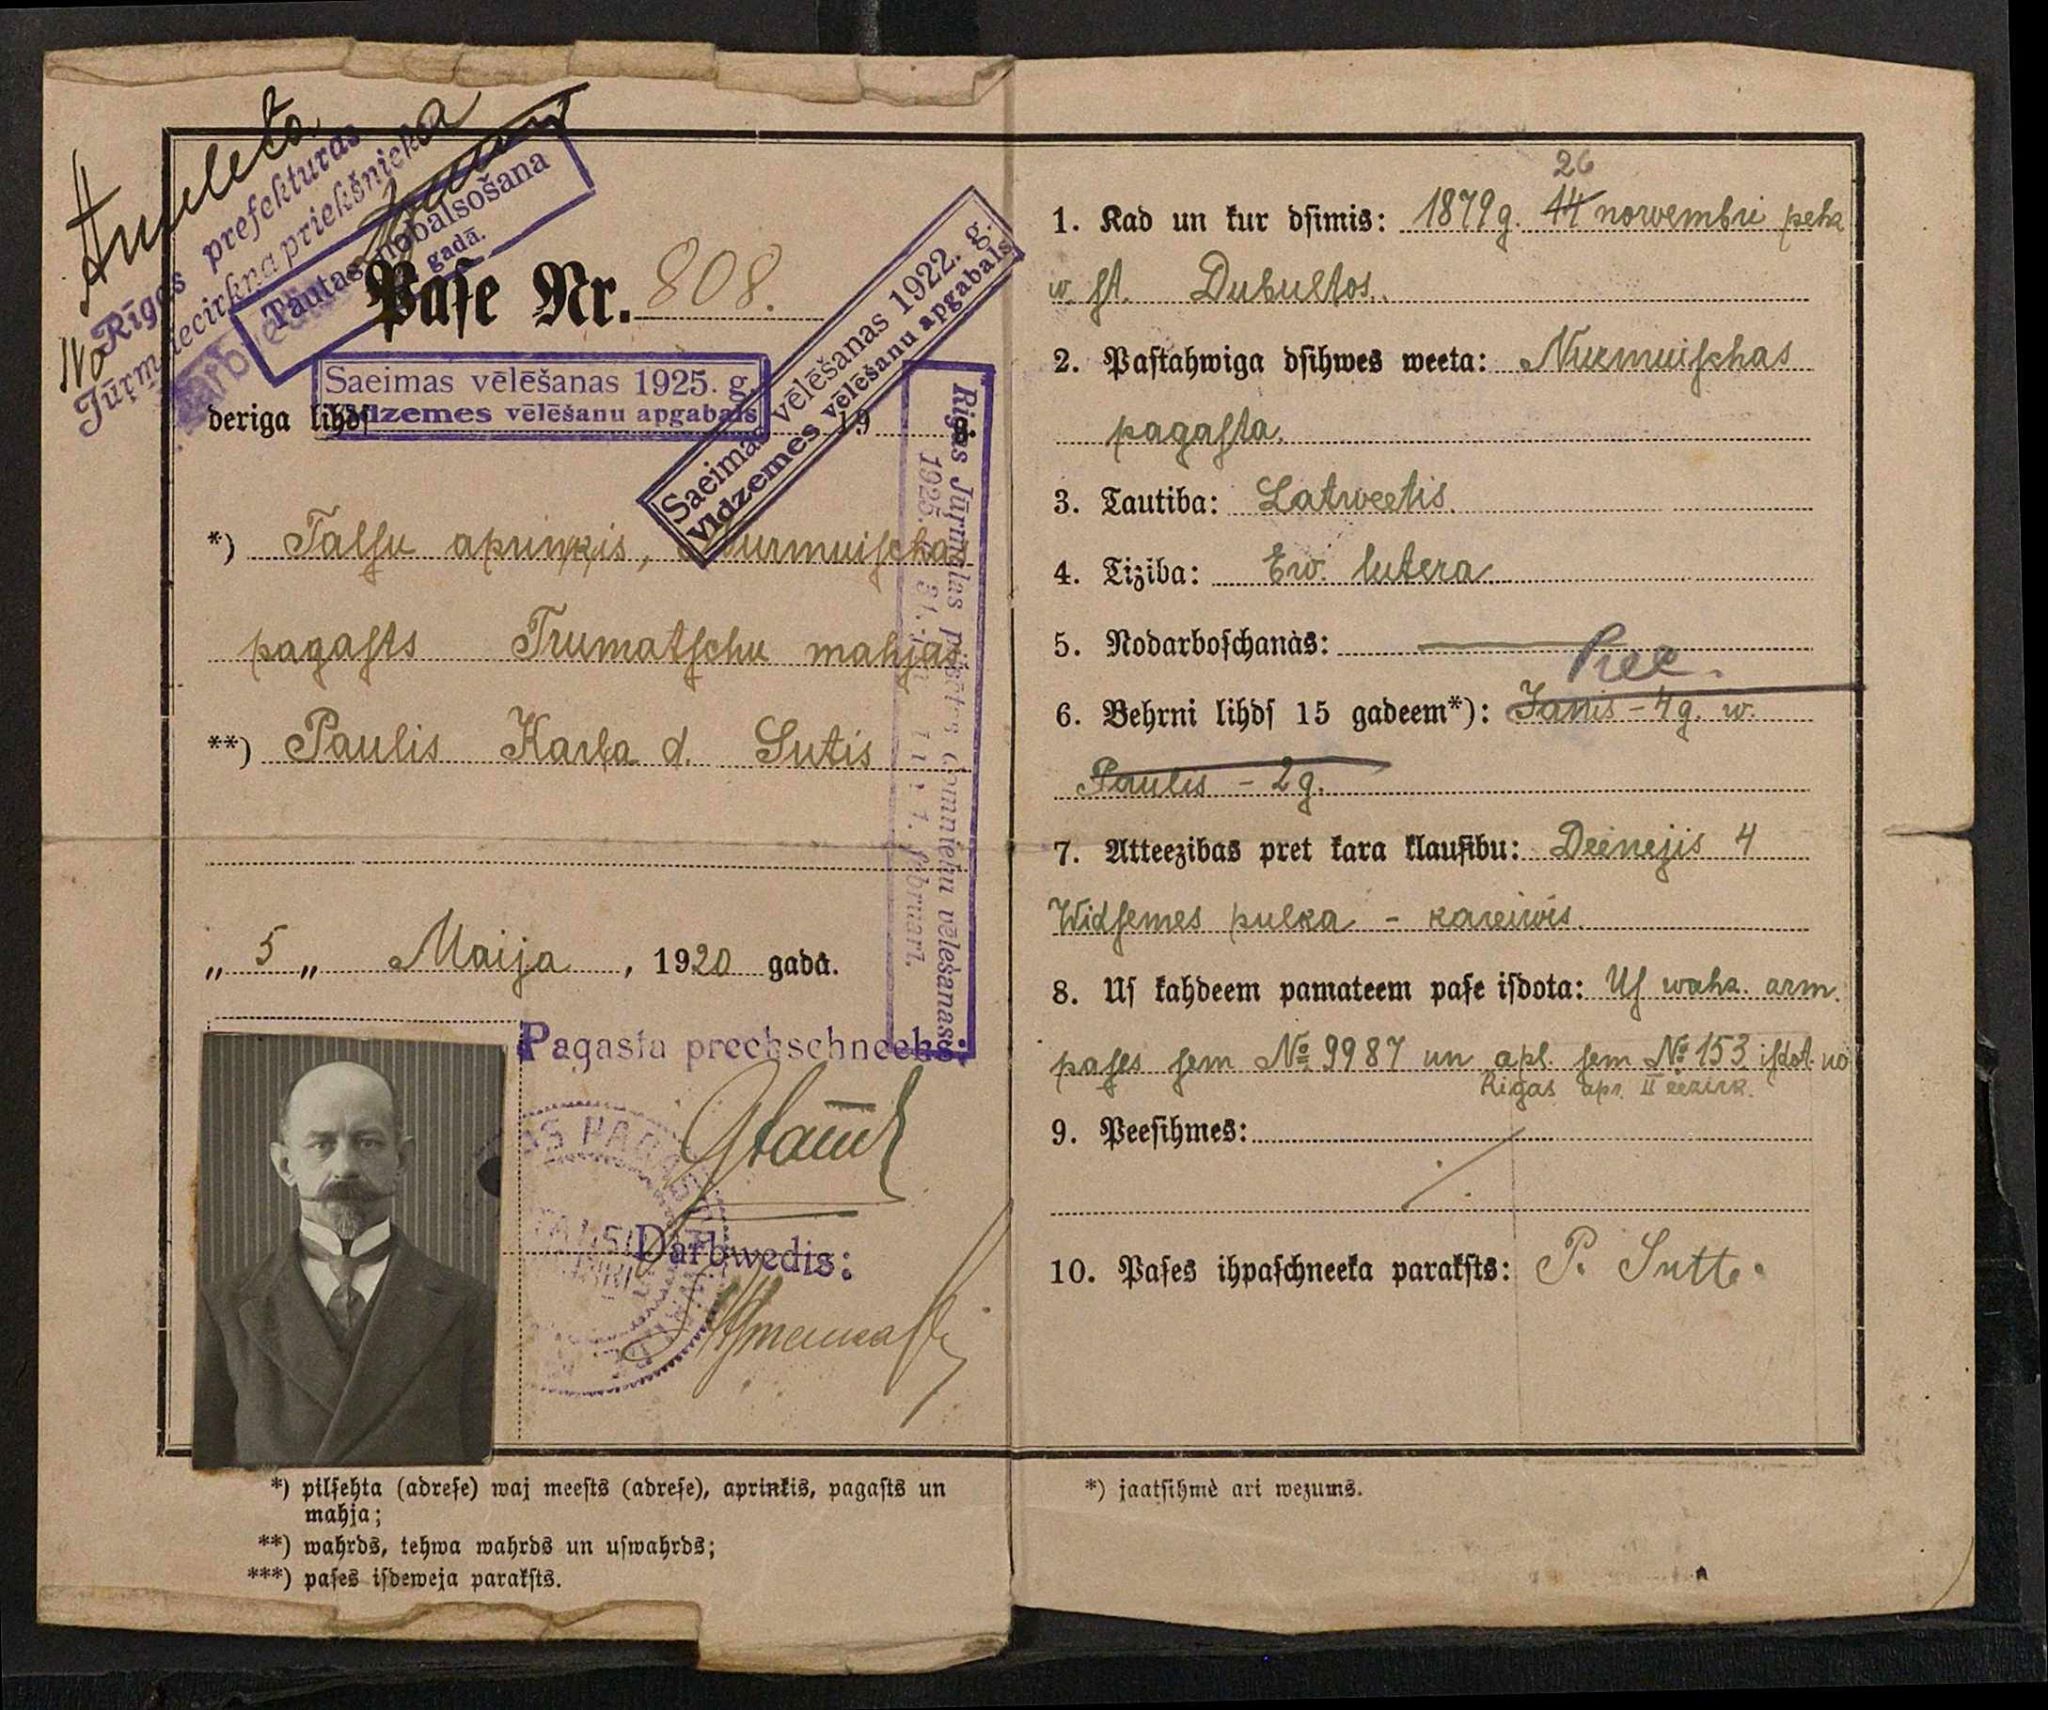 Anuleta
Rīgas prefekturas
Jūrm. iecirkņa priekšnieka
Tautas nobalsošana
gadā.
Pase Nr. 808.
Saeimas vēlēšanas 1922. g.
Vidzemes vēlēšanu apgabals
Saeimas vēlēšanas 1925. g.
Vidzemes vēlēšanu apgabals
deriga lihdſ 19 g.
Rīgas Jūrmalas pilsētas domnieku vēlēšanas
1925. g. 31. janv. un 1. februarī.
*) Talſu aprinkis, Nurmuiſchas
pagaſts Trumatſchu mahjas
**) Paulis Karļa d. Sutis
„ 5 „ Maija , 1920 gadà.
Pagasta preekschneeks:
Darbwedis:
*) pilſehta (adreſe) waj meeſts (adreſe), aprinkis, pagaſts un
mahja;
**) wahrds, tehwa wahrds un uſwahrds;
***) paſes iſdeweja parakſts.
26
1. Kad un kur dſimis: 1879 g. 14 novembri pehz
w. ſt. Dubultos.
2. Paſtahwiga dſihwes weeta: Nurmuiſchas
pagaſta.
3. Tautiba: Latweetis.
4. Tiziba: Ew. lutera
5. Nodarboſchanàs:
6. Behrni lihdſ 15 gadeem*): Janis – 4 g. w.
Paulis – 2 g.
7. Atteezibas pret kara klauſibu: Deenejis 4
Widſemes pulka – kareiwis.
8. Uſ kahdeem pamateem paſe iſdota: Uſ wahz. arm.
paſes ſem № 9987 un apl. ſem № 153 iſdot. no
Rigas apr. II eezirk.
9. Peeſihmes:
10. Paſes ihpaſchneeka parakſts: P. Sutte.
*) jaatſihmè ari wezums.